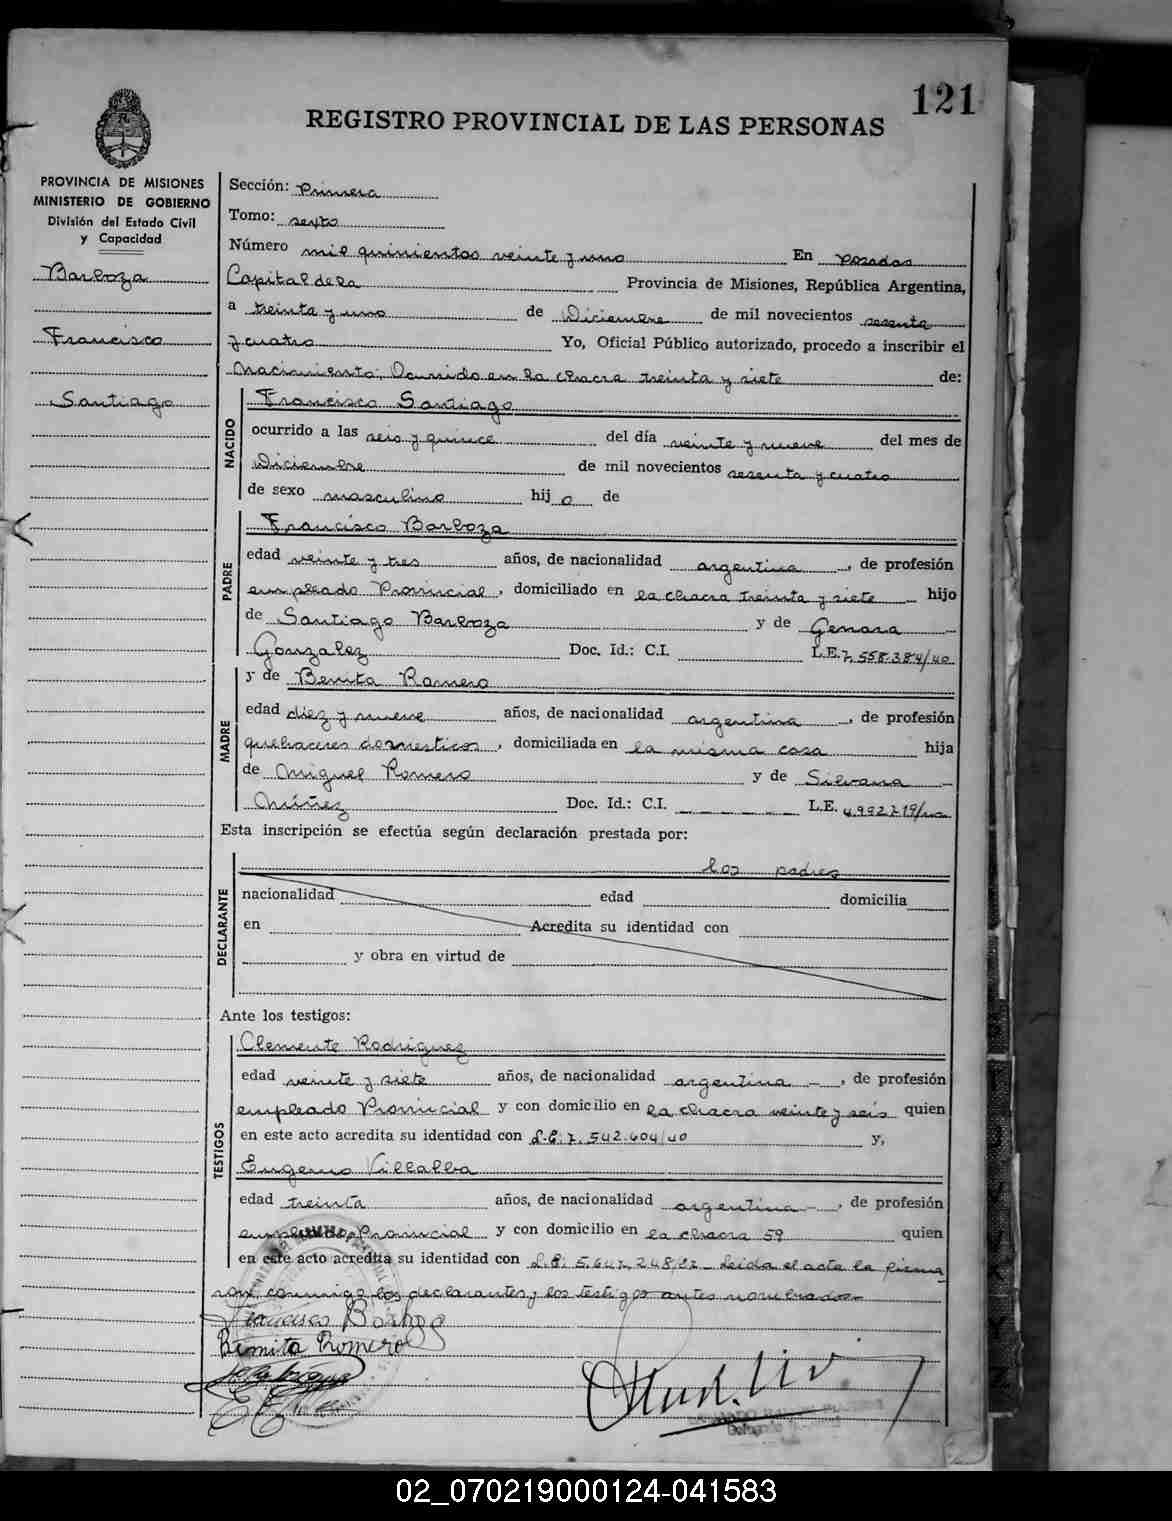 121
REGISTRO PROVINCIAL DE LAS PERSONAS
PROVINCIA DE MISIONES
MINISTERIO DE GOBIERNO
División del Estado Civil
y Capacidad
Barboza
Francisco
Santiago
Sección: Primera
Tomo: sexto
Número mil quinientos veinte y uno En Posadas
Capital de la Provincia de Misiones, República Argentina,
a treinta y uno de Diciembre de mil novecientos sesenta
y cuatro Yo, Oficial Público autorizado, procedo a inscribir el
Nacimiento, Ocurrido en la chacra treinta y siete de:
NACIDO
Francisco Santiago
ocurrido a las seis y quince del día veinte y nueve del mes de
Diciembre de mil novecientos sesenta y cuatro
de sexo masculino hij o de
PADRE
Francisco Barboza
edad veinte y tres años, de nacionalidad argentina, de profesión
empleado Provincial, domiciliado en la chacra treinta y siete hijo
de Santiago Barboza y de Genara
Gonzalez Doc. Id.: C.I. L.E. 7.558.384/40
MADRE
y de Benita Romero
edad diez y nueve años, de nacionalidad argentina, de profesión
quehaceres domesticos, domiciliada en la misma casa hija
de Miguel Romero y de Silvana
Núñez Doc. Id.: C.I. L.E.
Esta inscripción se efectúa según declaración prestada por:
DECLARANTE
los padres
nacionalidad edad domicilia
en Acredita su identidad con
y obra en virtud de
Ante los testigos:
TESTIGOS
Clemente Rodriguez
edad veinte y siete años, de nacionalidad argentina, de profesión
empleado Provincial y con domicilio en la chacra veinte y seis quien
en este acto acredita su identidad con L.E. 7.542.604/40 y,
Eugenio Villalba
edad treinta años, de nacionalidad argentina, de profesión
empleado Provincial y con domicilio en la chacra 59 quien
en este acto acredita su identidad con L.E. 5.647.248 Leida el acta la firma
ron conmigo los declarantes y los testigos antes nombrados
Francisco Barboza
Benita Romero
02_070219000124-041583